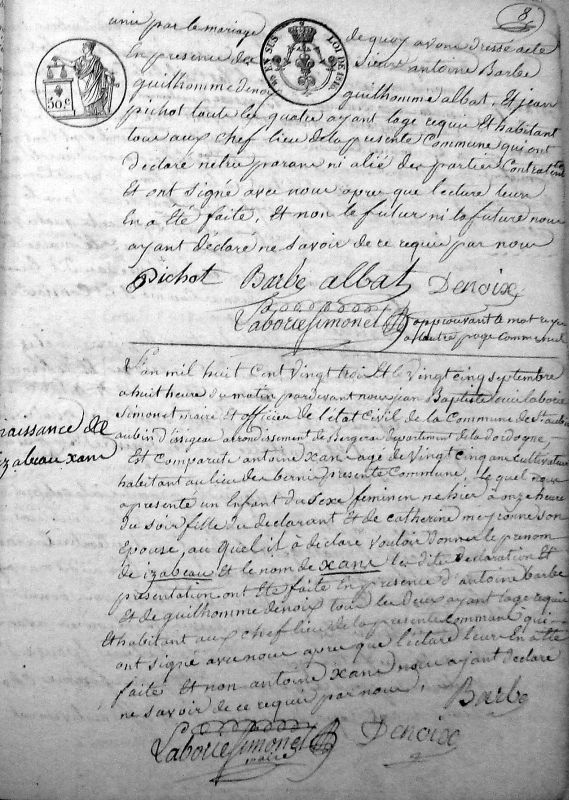 8.
unis par le mariage de quoy avons dressé acte
En presence des sieurs antoine Barbe
guilhomme denoix guilhomme albat, Et jean
pichot toute les quatre ayant lage requis Et habitant
tous aux chef lieu de la presente Commune qui ont
declaré netre parans ni alié des parties Contractante
Et ont signé avec nous apres que lecture leur
En a Eté faite, Et non le futur ni la future nous
ayant déclaré ne savoir de ce requis par nous
pichot Barbe albat Denoix
30 c
LOI DE
Laborie Simonet approuvant le mot
a lautre page comme nul
L'an mil huit Cent vingt trois Et le vingt cinq septembre
a huit heure du matin pardevant nous jean Baptiste Laborie
Simonet maire Et officier de l'état Civil de la Commune de St aubin
naissance de
izabeau xans
aubin d'issigeac arrondissement de Bergerac departement de la dordogne,
Est comparu antoine xans age de vingt cinq ans cultivateur
habitant au lieu des presente Commune, le quel nous a
a presenté un Enfant du Sexe feminen né hier a onze heure
du soir fille du declarant Et de catherine son
Epouse, au quel il à declaré vouloir donner le prenom
de izabeau Et le nom de xans les dites déclaration Et
presentation ont Eté faite En presence d'antoine barbe
Et de guilhomme denoix tous les deux ayant lage requis
Et habitant aux chef lieu de la presente Commune qui
ont signé avec nous apres que lecture leur En a Eté
faite Et non antoine xans nous ayant declaré
ne savoir de ce requis par nous. Barbe
Laborie Simonet Denoix
maire